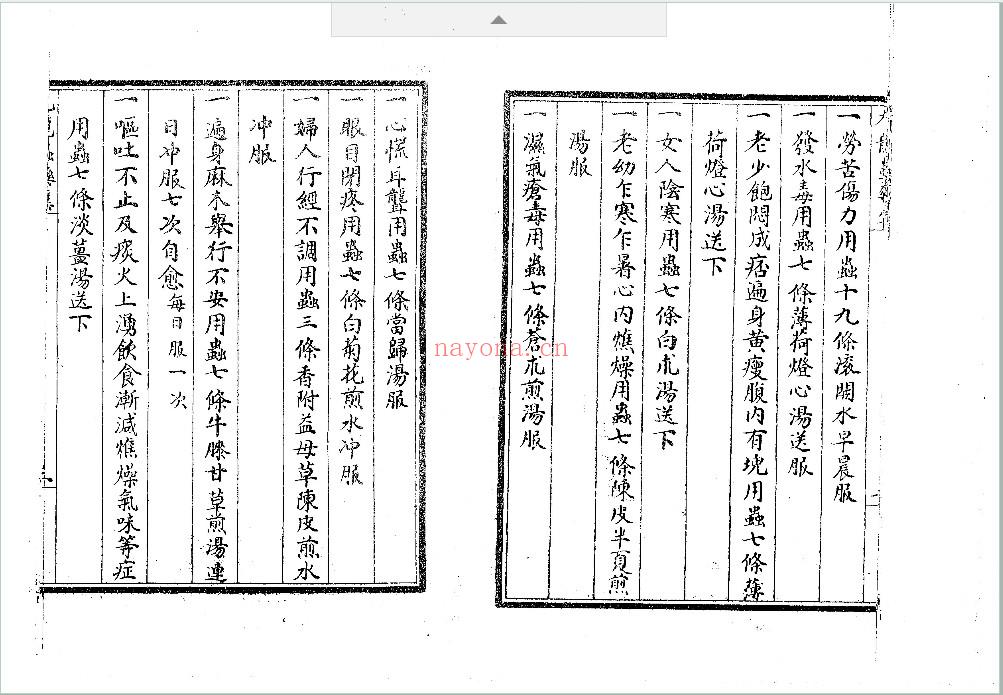 一勞苦傷力用蟲十九條滚開水早晨服
一發水毒用蟲七條薄荷燈心湯送服
一老少飽悶成痞遍身黄瘦腹内有塊用蟲七條薄
荷燈心湯送下
一女人陰寒用蟲七條白朮湯送下
一老幼乍寒乍暑心内燋燥用蟲七條陳皮半頁煎
湯服
一濕氣瘡毒用蟲七條蒼朮煎湯服
一心慌耳聾用蟲七條當歸湯服
一眼目閉疼用蟲七條白菊花煎水冲服
一婦人行經不調用蟲三條香附益母草陳皮煎水
冲服
一遍身麻木舉行不安用蟲七條牛膝甘草煎湯連
日冲服七次自愈每日服一次
一嘔吐不止及痰火上湧飲食漸減燋燥氣味等症
用蟲七條淡薑湯送下
nayona.cn